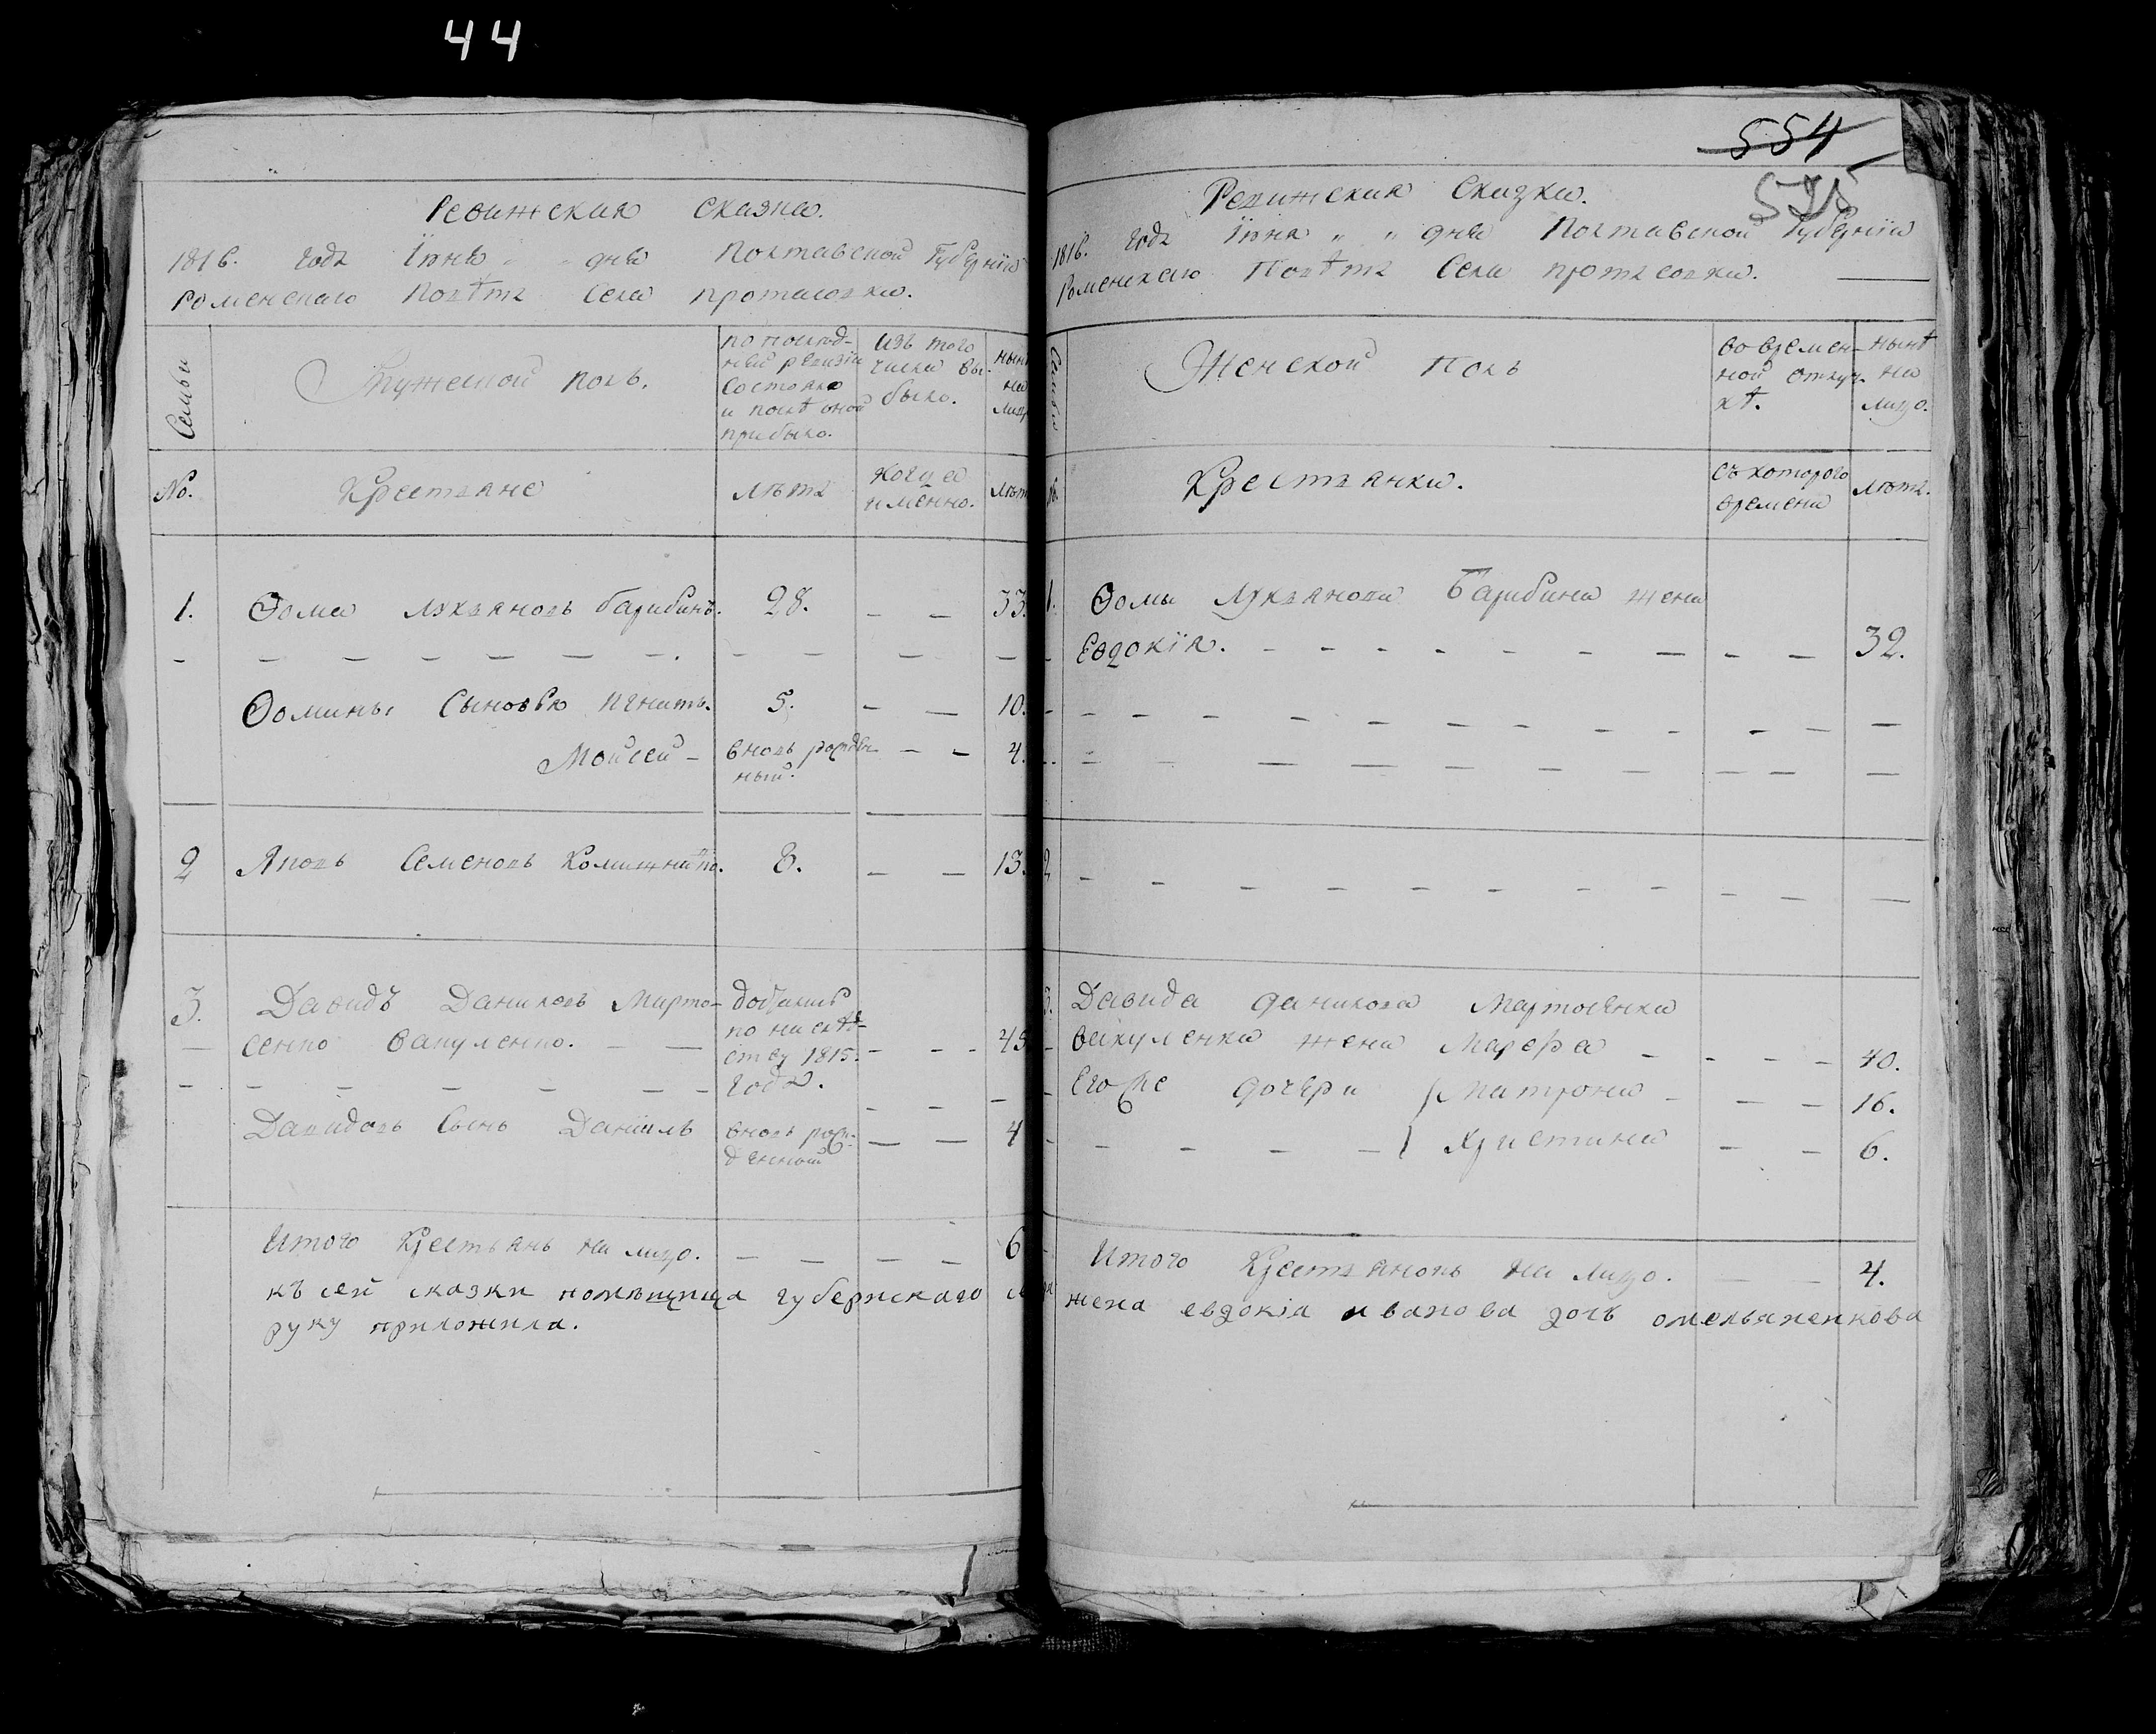 44
Ревижская сказка.
1816. года Іюня дня Полтавской Губерніи
Роменскаго Повѣта Села Протасовки.
Семьи
Мужеской полъ.
по послѣд-
ней ревизіи
состояло
и послѣ оной
прибыло.
Изъ того
числа вы-
было.
нынѣ
на
лицо
No.
Крестьяне
лѣта
когда
именно.
лѣта
1. Ѳома Лукьяновъ Барибинъ. 28. — — 33.
Ѳомины Сыновья 5. — — 10.
Мойсей — вновь рожден-
ный. — — 4.
2 Яковъ Семеновъ 8. — — 13.
3. Давидъ Даниловъ Марто-
сенко Вакуленко. — —
по наслѣд-
ству 1815.
года. 45
Давидовъ Сынъ Даніилъ вновь рож-
денный — — 4
Итого Крестьянъ на лицо. — — — — 6
къ сей сказки помѣщица губернскаго
руку приложила.
554
525
Ревижская Сказка.
1816. года Іюня " " дня Полтавской Губерніи
Роменскаго Повѣта Села Протасовки.
Семьи
Женской Полъ
во времен-
ной отлуч-
кѣ.
нынѣ
на
лицо.
№.
Крестьянки.
съ которого
времени
лѣта.
1. Ѳомы Лукьянова Барибина жена
Евдокія. — — — — — — — — 32.
2
3. Давида Данилова Мартосенка
Вакуленка жена Марфа — — — — 40.
Его же дочери Матрона — — — 16.
Христина — — 6.
Итого Крестьянокъ на лицо. — — 4.
жена евдокіа иванова дочъ омельяненкова